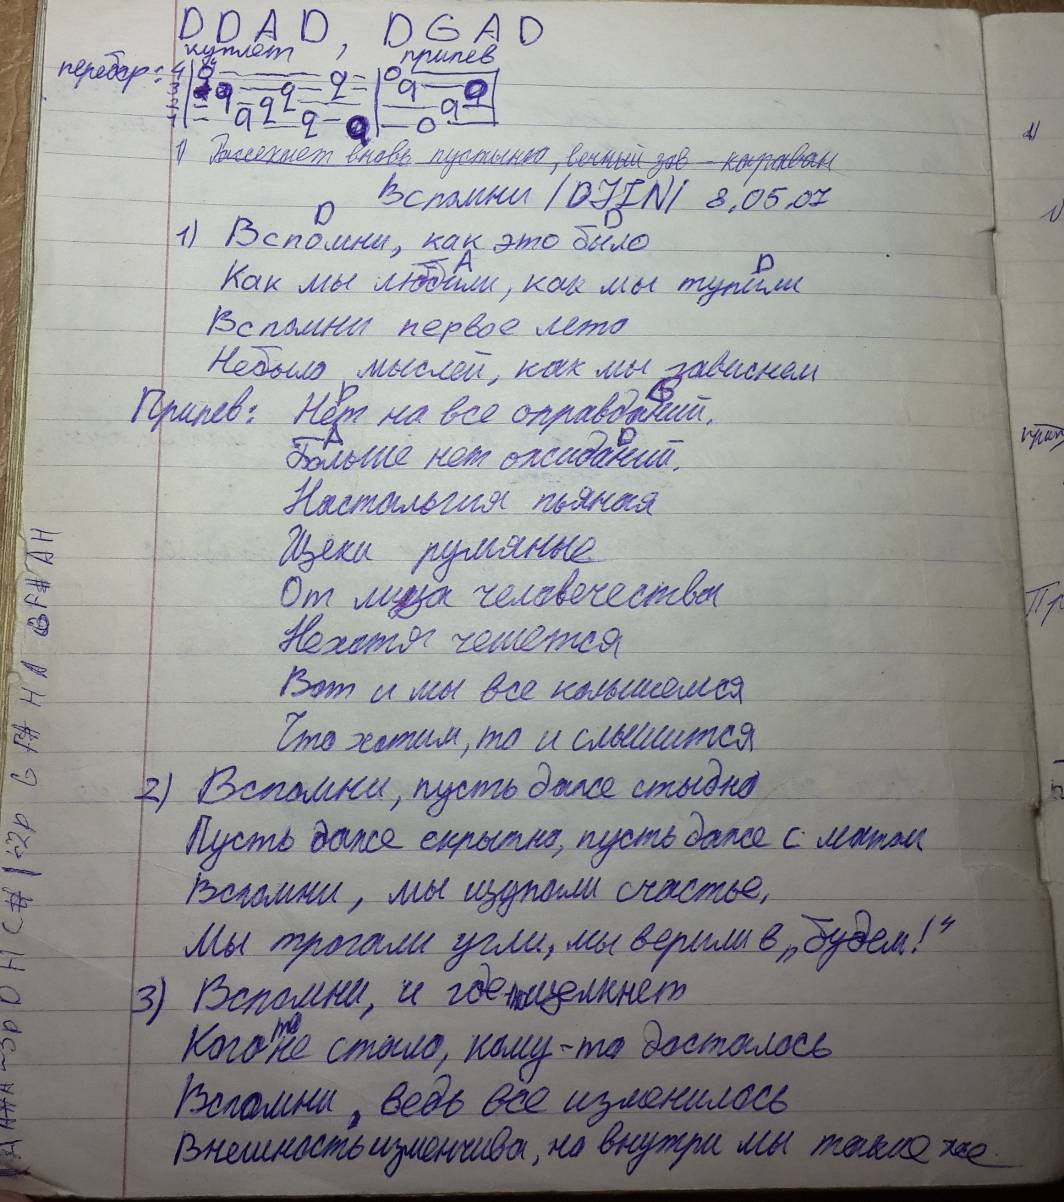 DDAD, DGAD
куплет припев
перебор: 4
3
2
1
1) Рассекает вновь пустыню, вечный зов - караван
Вспомни /DJIN/ 8.05.07
D D
1) Вспомни, как это было
A D
Как мы любили, как мы тупили
Вспомни первое лето
Небыло мыслей, как мы зависнем
D G
Припев: Нет на все оправданий.
A D
Больше нет ожиданий.
Настальгия пьяная
Щеки румяные
От лица человечества
Нехотя чешется
Вот и мы все колышемся
Что хотим, то и слышится
2) Вспомни, пусть даже стыдно
Пусть даже скрытно, пусть даже с матом
Вспомни, мы щупали счастье,
Мы трогали угли, мы верили в „будем!"
3) Вспомни, и где то щелкнет
Кого то не стало, кому-то досталось
Вспомни, ведь все изменилось
Внешность изменчива, но внутри мы такие же